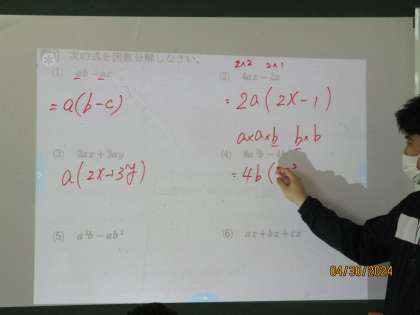 次の式を因数分解しなさい。
(1) ab-ac
= a(b-c)
2×2 2×1
(2) 4ax-2a
= 2a(2x-1)
(3) 2ax+3ay
a(2x+3y)
a×a×b b×b
(4) 8a²b-4b
= 4b(
(5) a²b-ab²
(6) ax+bx+cx
04/30/2024